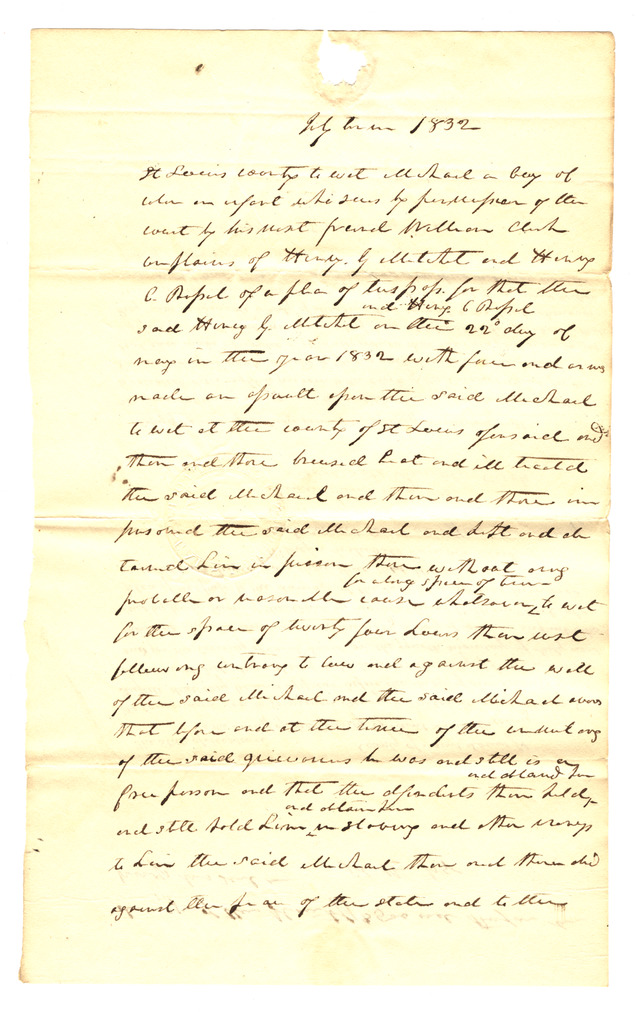 July term 1832
St Louis county to wit Michael a boy of
color an infant who sues by permission of the
court by his next friend William Clark
complains of Henry G Mitchel and Henry
C. Russel of a plea of trespass. for that the
and Henry C Russel
said Henry G. Mitchel on the 22d day of
may in the year 1832 with force and arms
made an assault upon the said Michael
to wit at the county of St Louis aforesaid and
then and there bruised beat and ill treated
the said Michael and then and there im
prisoned the said Michael and kept and de
tained him in prison there without any
for a long space of time
probable or reasonable cause whatsoever, to wit
for the space of twenty four hours then next
following contrary to law and against the will
of the said Michael and the said Michael avers
that before and at the time of the committing
of the said grievances he was and still is a
and detained him
free person and that the defendants then held
and detain him
and still hold him in slavery and other wrongs
to him the said Michael then and there did
against the peace of the state and to the